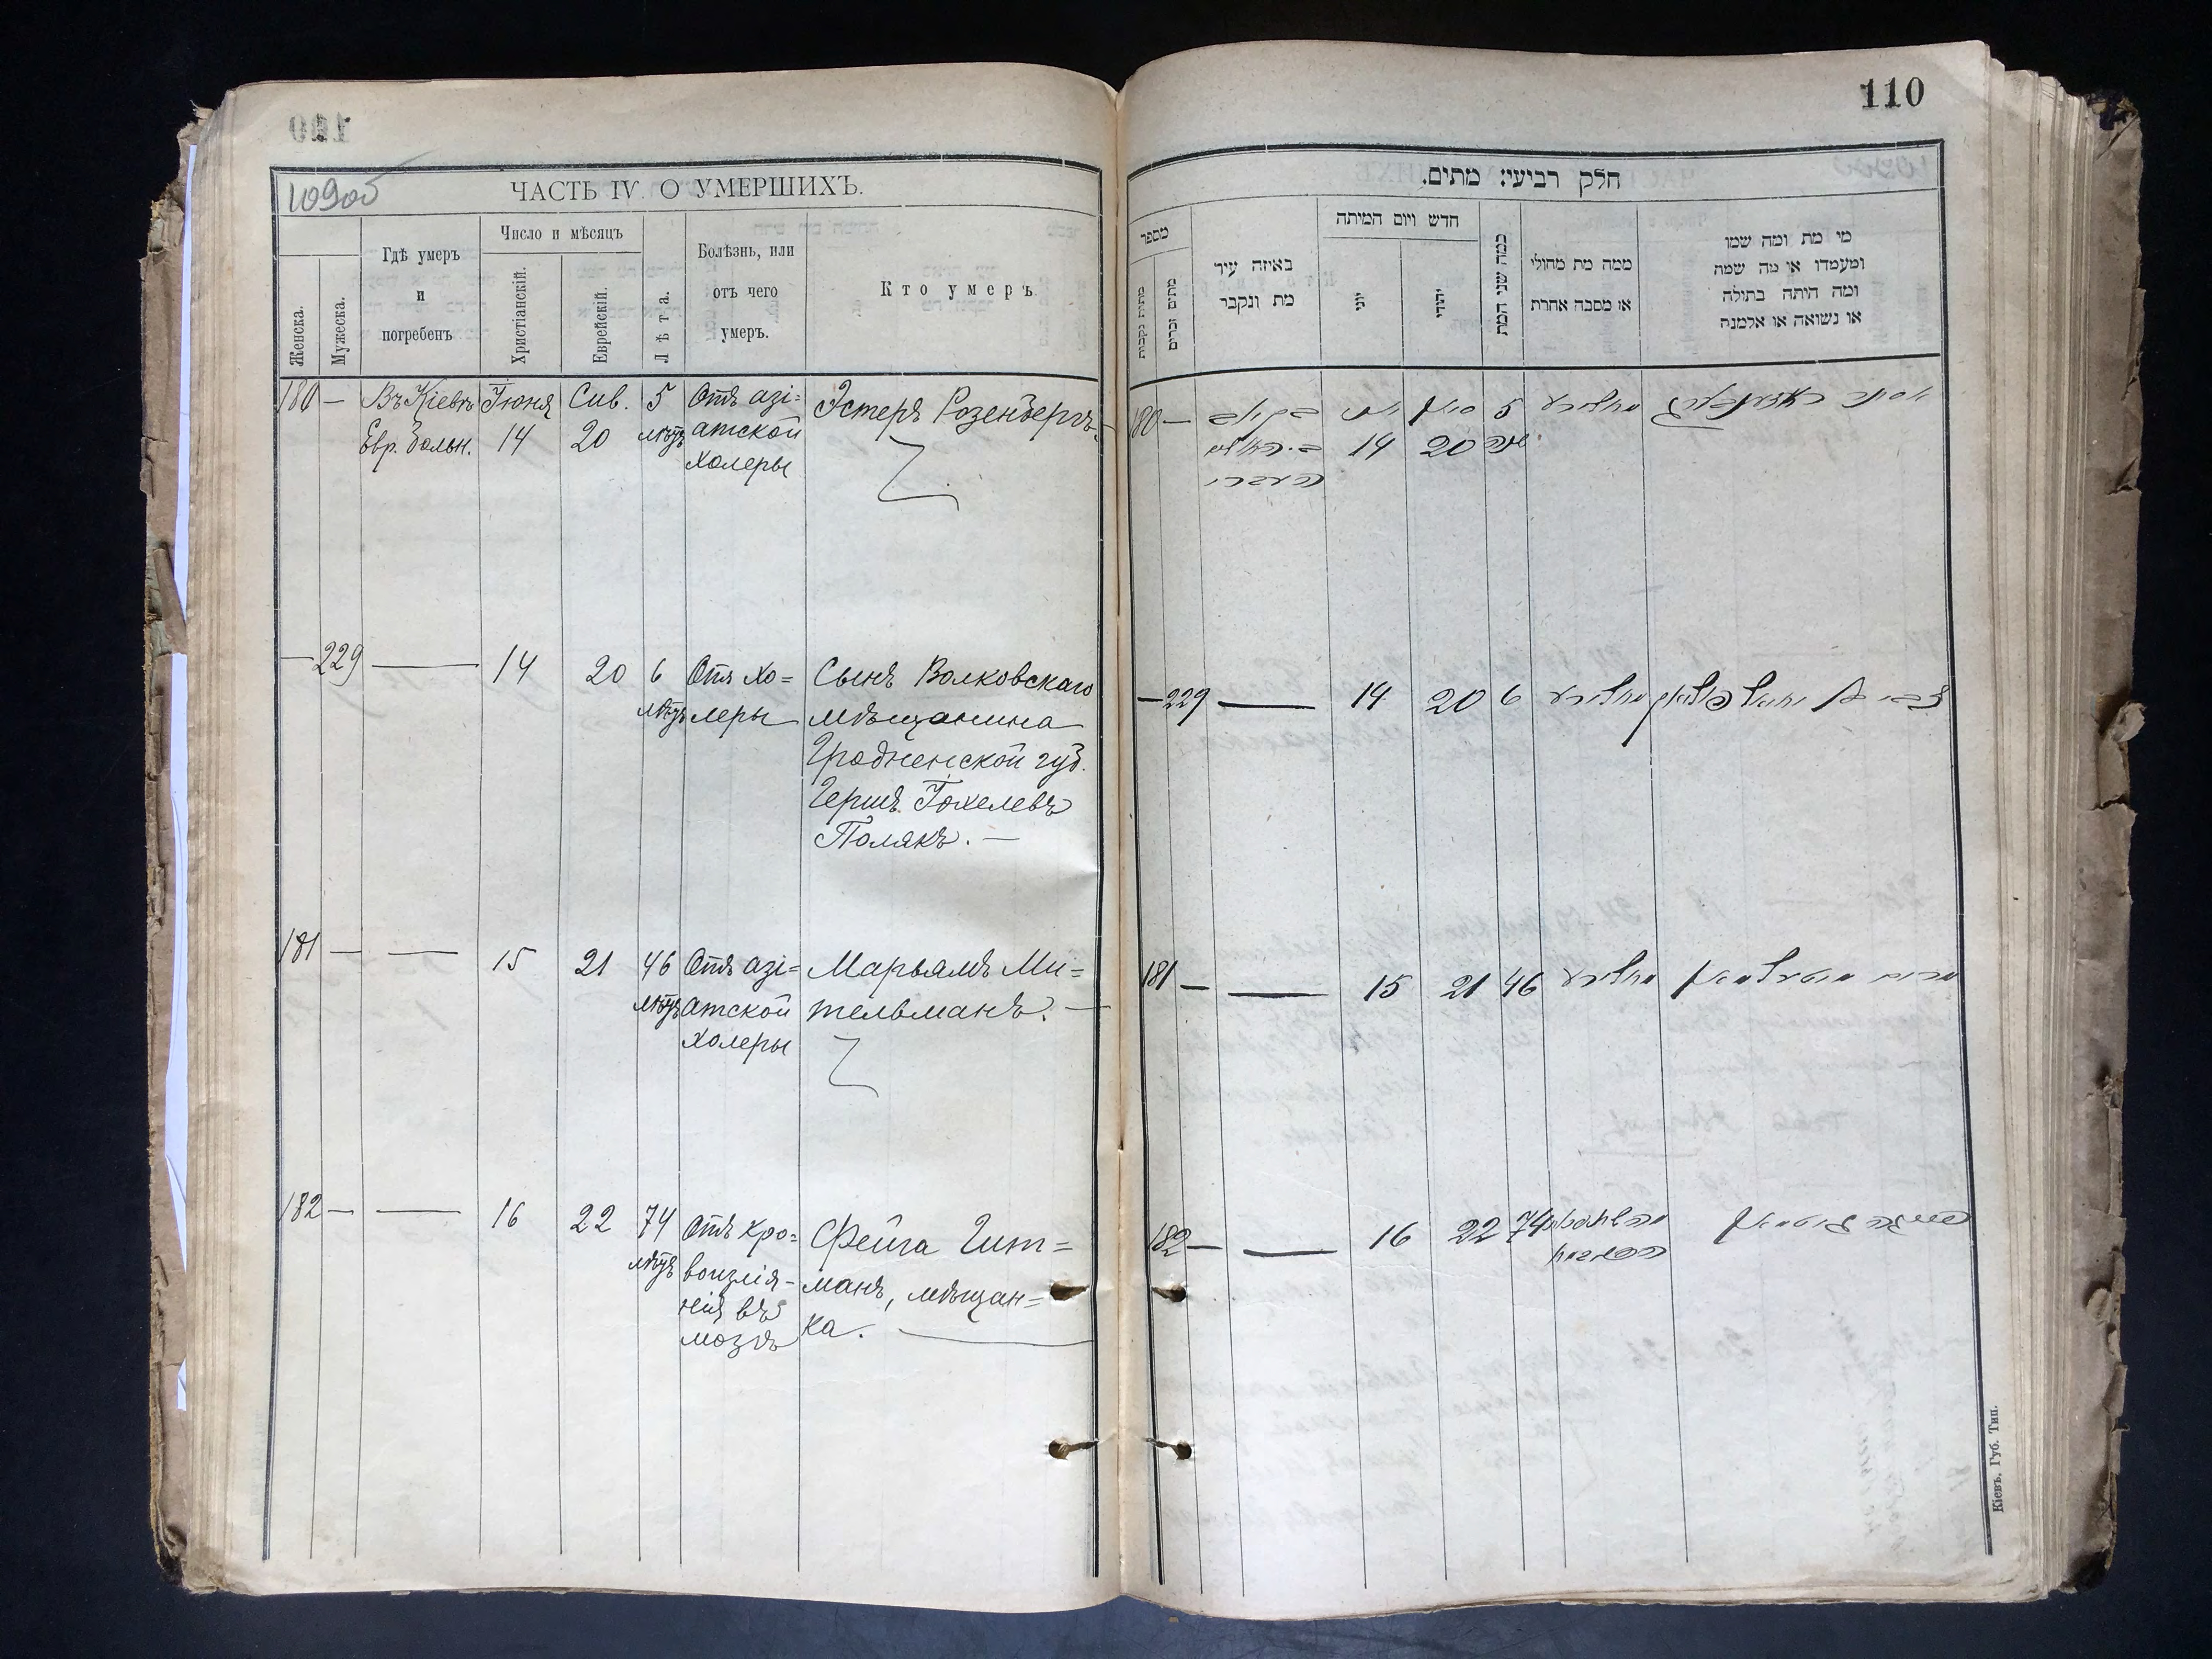 110
ЧАСТЬ IV. О УМЕРШИХЪ.
Женска.
Мужеска.
Гдѣ умеръ
и
погребенъ
Число и мѣсяцъ
Христіанскій.
Еврейскій.
Лѣта.
Болѣзнь, или
отъ чего
умеръ.
Кто умеръ
180 — Въ Кіевѣ Іюня Сив. 5 Отъ азі= Эстеръ Розенбергъ
Евр. больн. 14 20 лѣтъ атской
холеры
— 229 — 14 20 6 Отъ хо= Сынъ Волковскаго
лѣтъ леры мѣщанина
Гродненской губ.
Гершъ
Полякъ. —
181 — — 15 21 46 Отъ азі= Марьямъ Ми=
лѣтъ атской тельманъ. —
холеры
182 — — 16 22 74 Отъ кро= Фейга Гит=
лѣтъ воизлія- манъ, мѣщан=
нія въ ка.
мозгъ
חלק רביעי: מתים.
מספר
מתות נקבות
מתים זכרים
באיזה עיר
מת ונקבר
חדש ויום המיתה
יוני
יהודי
כמה שני המת
ממה מת מחולי
או מסבה אחרת
מי מת ומה שמו
ומעמדו או מה שמה
ומה היתה בתולה
או נשואה או אלמנה
180 — 5 חולירע אסתר ראזענבערג
14 20 שנה
— 229 — 14 20 6 חולירע
181 — — 15 21 46 חולירע מרים מיטעלמאן
182 — — 16 22 74 פייגא גיטמאן
Кіевъ, Губ. Тип.